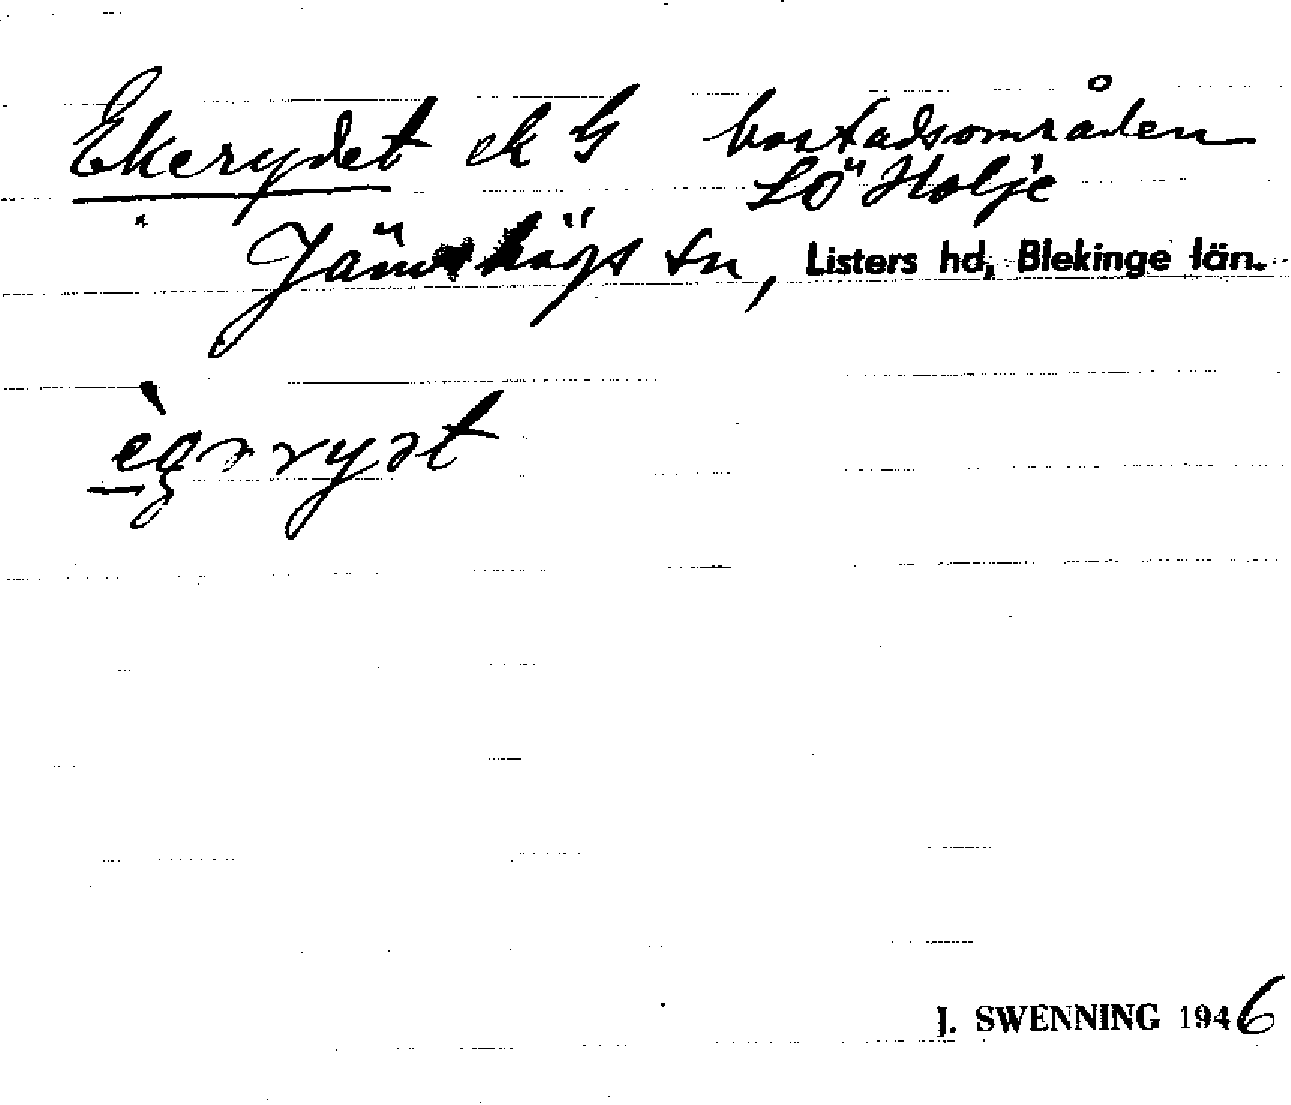 Ekerydet ek G bostadsområden
SÖ Holje
Jämshögs sn, Listers hd, Blekinge län.
J. SWENNING 1946